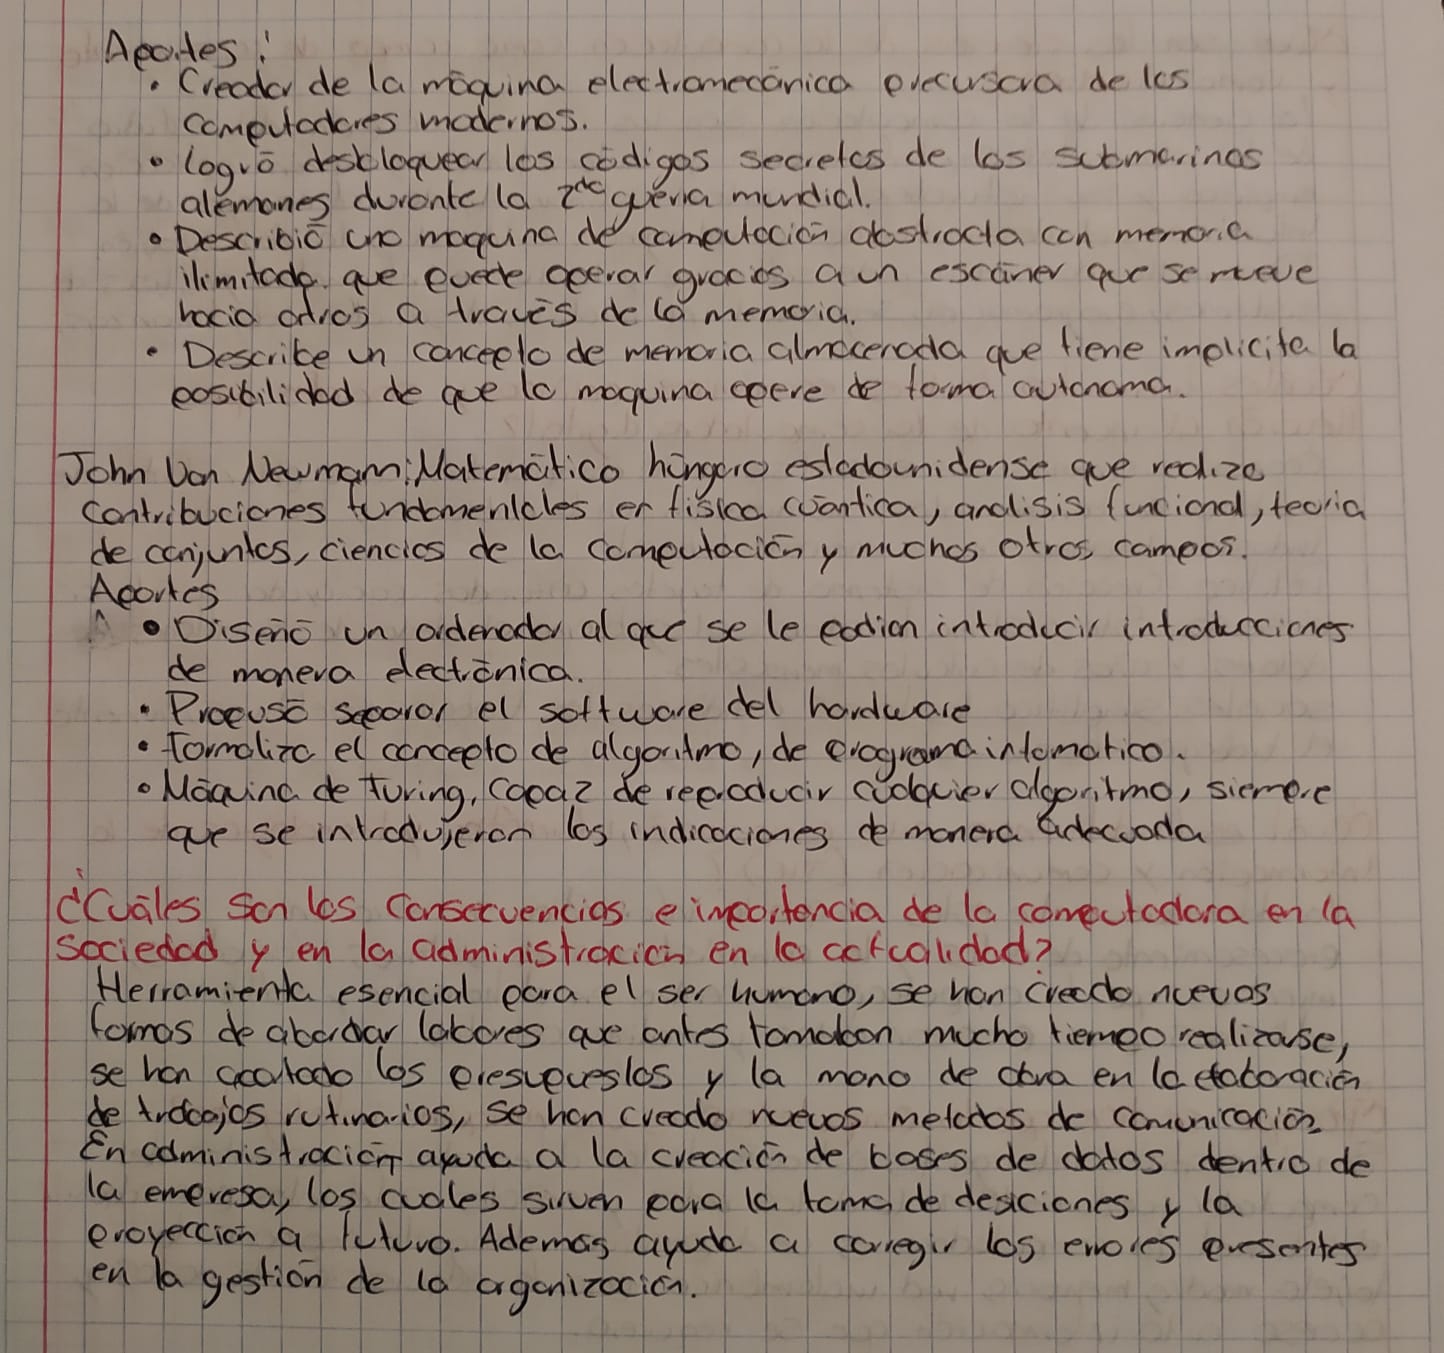 Aportes:
• Creador de la máquina electromecánica precursora de los
computadores modernos.
• logró desbloquear los códigos secretos de los submarinos
alemanes durante la 2da guerra mundial.
• Describió una maquina de computación abstracta con memoria
ilimitada que puede operar gracias a un escáner que se mueve
hacia adras a través de la memoria.
• Describe un concepto de memoria almacenada que tiene implicita la
posibilidad de que la maquina opere de forma autonoma.
John Von Newmam: Matemático húngaro estadounidense que realizo
contribuciones fundamentales en física cuántica, analisis funcional, teoria
de conjuntos, ciencias de la computación y muchos otros campos.
Aportes
• Diseñó un ordenador al que se le podian introducir introducciones
de manera electrónica.
• Propusó separar el software del hardware
• Formalizo el concepto de algoritmo, de programa informatico.
• Máquina de Turing, capaz de reproducir cualquier algoritmo, siempre
que se introdujeron las indicaciones de manera adecuada
¿Cuáles son las consecuencias e importancia de la computadora en la
sociedad y en la administración en la actualidad?
Herramienta esencial para el ser humano, se han creado nuevas
formas de abordar labores que antes tomaban mucho tiempo realizarse,
se han acortado los presupuestos y la mano de obra en la elaboración
de trabajos rutinarios, se han creado nuevos metodos de comunicación.
En administración ayuda a la creación de bases de datos dentro de
la empresa, los cuales sirven para la toma de desiciones y la
proyección a futuro. Ademas ayuda a corregir los errores presentes
en la gestión de la organización.